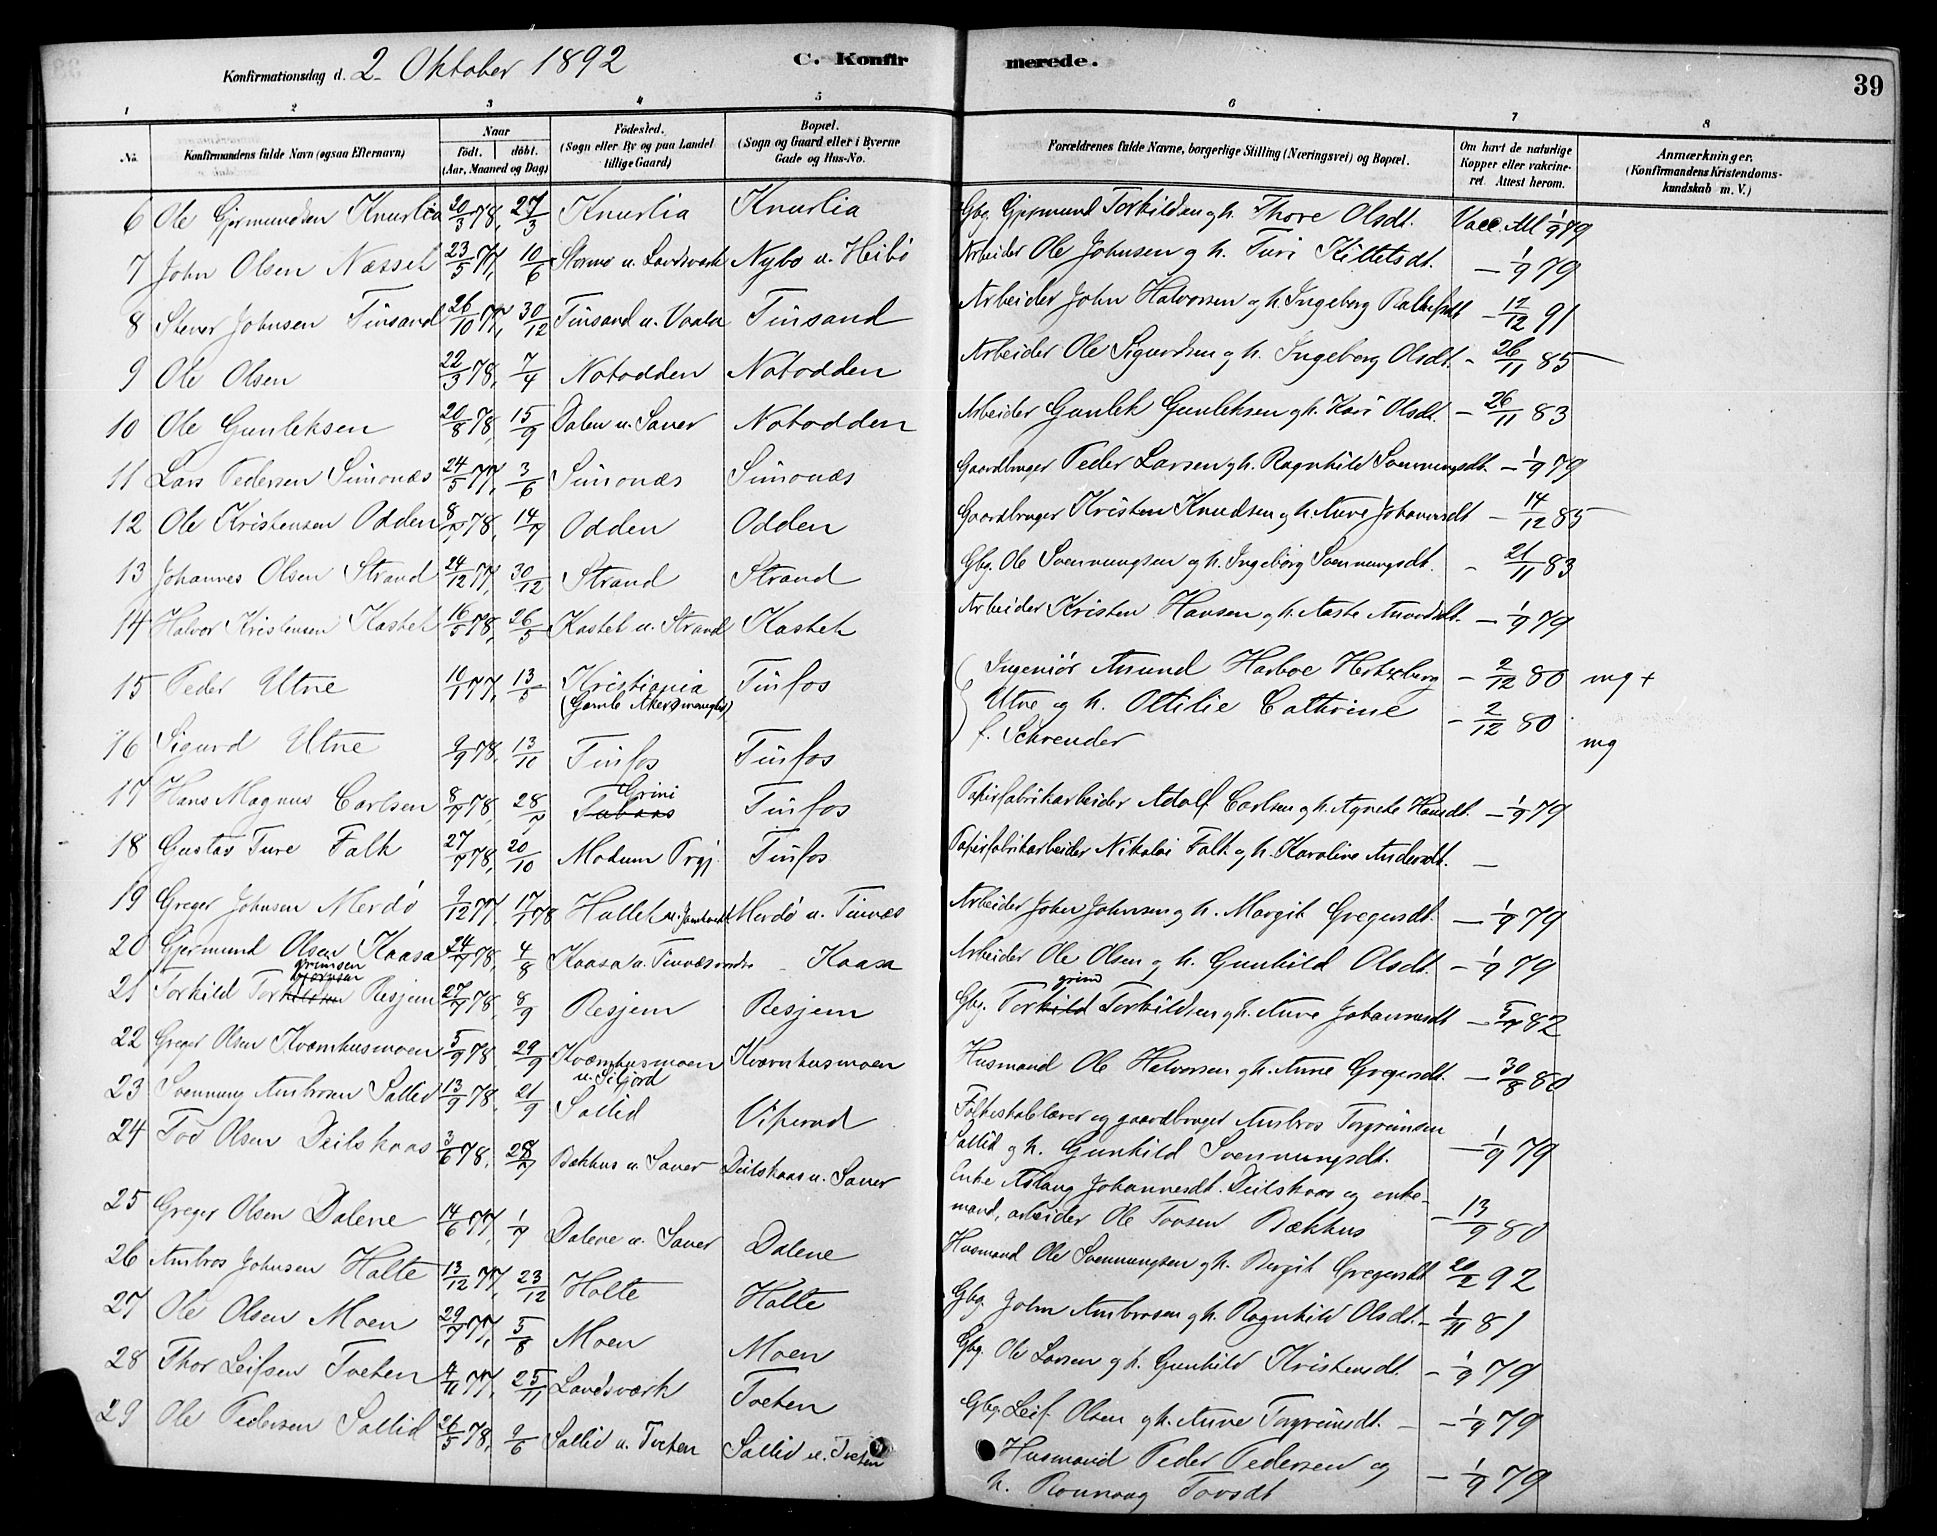 Konfirmationsdag d. 2. Oktober 1892
C. Konfirmerede.
39
1 2 3 4 5 6 7 8
No.
Konfirmandens fulde Navn (ogsaa Efternavn)
Naar
födt. döbt.
(Aar, Maaned og Dag)
Födested.
(Sogn eller By og paa Landet
tillige Gaard)
Bopæl.
(Sogn og Gaard eller i Byerne
Gade og Hus-No.
Forældrenes fulde Navne, borgerlige Stilling (Næringsvei) og Bopæl.
Om havt de naturlige
Kopper eller vakcine-
ret. Attest herom.
Anmærkninger.
(Konfirmandens Kristendoms-
kundskab m. V.)
6 Ole Gjermundsen Knurlia 20/3 78, 27/3 Knurlia Knurlia Gbg. Gjermund Torkildsen og h. Thore Olsdt. Vacc. Att 1/9 79
7 John Olsen Næsset 23/5 77, 10/6 Stormo u. Landsværk Nybø u. Heibø Arbeider Ole Johnsen og h. Turi Kittelsdt. – 1/9 79
8 Stener Johnsen Tinsand 26/10 77, 30/12 Tinsand u. Vaala Tinsand Arbeider John Halvorsen og h. Ingeborg – 12/12 91
9 Ole Olsen 22/3 78, 7/4 Notodden Notodden Arbeider Ole Sigurdsen og h. Ingeborg Olsdt. – 26/11 85
10 Ole Gunleksen 20/8 78, 15/9 Dalen u. Sauer Notodden Arbeider Gunlek Gunleksen og h. Kari Olsdt. – 26/11 83
11 Lars Pedersen Simonæs 24/5 77, 3/6 Simonæs Simonæs Gaardbruger Peder Larsen og h. Ragnhild Svennungsdt. – 1/9 79
12 Ole Kristensen Odden 8/7 78, 14/7 Odden Odden Gaardbruger Kristen Knudsen og h. Anne Johannesdt – 14/12 85
13 Johannes Olsen Strand 24/12 77, 30/12 Strand Strand Gbg. Ole Svennungsen og h. Ingebørg Svennungsdt. – 21/11 83
14 Halvor Kristensen Kastet 16/5 78, 26/5 Kastet u. Strand Kastet Arbeider Kristen Hansen og h. Aaste – 1/9 79
15 Peder Utne 10/1 77, 13/5 Kristiania Tinfos Ingeniør Amund Harboe Hertzberg – 2/12 80 mg +
(Gamle Akers menighed) Utne og h. Ottilie Cathrine – 2/12 80
16 Sigurd Utne 9/9 78, 13/11 Tinfos Tinfos f. Schreuder mg
17 Hans Magnus Carlsen 8/7 78, 28/7 Grini Tinfos Papirfabrikarbeider Adolf Carlsen og h. Agnete Hansdt. – 1/9 79
18 Gustav Ture Falk 27/7 78, 20/10 Modum Prgj. Tinfos Papirfabrikarbeider Nikolai Falk og h. Karoline Andersdt. –
19 Greger Johnsen Merdø 9/12 77, 17/1 78 Hallet u. Merdø u. Tinnæs Arbeider John Johnsen og h. Margit Gregersdt. – 1/9 79
20 Gjermund Olsen Kaasa 24/7 78, 4/8 Kaasa u. Tinnæs Kaasa Arbeider Ole Olsen og h. Gunhild Olsdt. – 1/9 79
grimsen grim
21 Torkild Torkildsen Resjem 27/7 78, 8/9 Resjem Resjem Gbg. Torkild Torkildsen og h. Anne Johannesdt – 5/7 82
22 Greger Olsen Kværnhusmoen 5/9 78, 29/9 Kværnhusmoen Kværnhusmoen Husmand Ole Halvorsen og h. Anne Gregersdt. – 30/8 80
u. Seljord
23 Svennung Ambrosen Sallid 13/9 78, 21/9 Sallid Viperud Folkeskolelærer og gaardbruger Ambros Torgrimsen
Sallid og h. Gunhild Svennungsdt. – 1/9 79
24 Tov Olsen Deilskaas 3/6 78, 28/7 Bækhus u. Sauer Deilskaas u. Sauer Enke Aslaug Johannesdt. Deilskaas og enke-
mand, arbeider Ole Tovsen Bækhus – 13/9 80
25 Greger Olsen Dalene 14/6 77, 1/7 Dalene u. Sauer Dalene Husmand Ole Svennungsen og h. Bergit Gregersdt 20/2 92
26 Ambros Johnsen Holte 13/12 77, 23/12 Holte Holte Gbg. John Ambrosen og h. Ragnhild Olsdt. – 1/11 81
27 Ole Olsen Moen 29/7 77, 5/8 Moen Moen Gbg. Ole Larsen og h. Gunhild Kristensdt. – 1/9 79
28 Thor Leifsen Tveten 4/11 77, 25/11 Landsværk Tveten Gbg. Leif Olsen og h. Anne Torgrimsdt. – 1/9 79
29 Ole Pedersen Sallid 26/5 78, 9/6 Sallid u. Tveten Sallid u. Tveten Husmand Peder Pedersen og
h. Rønnaug Tovsdt – 1/9 79